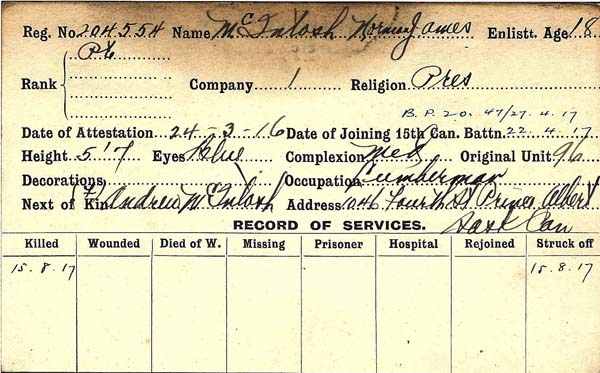 Reg. No. 204554 Name McIntosh Norman James Enlistt. Age 18
Pte
Rank Company 1 Religion Pres
B.P.20. 47/27.4.17
Date of Attestation 24-3-16 Date of Joining 15th Can. Battn. 22.4.17
Height 5'7 Eyes Blue Complexion Med Original Unit 96
Decorations Occupation Lumberman
Next of Kin (F) Andrew McIntosh Address 1046 Fourth St Prince Albert
RECORD OF SERVICES. Sask Can
Killed Wounded Died of W. Missing Prisoner Hospital Rejoined Struck off
15.8.17 15.8.17